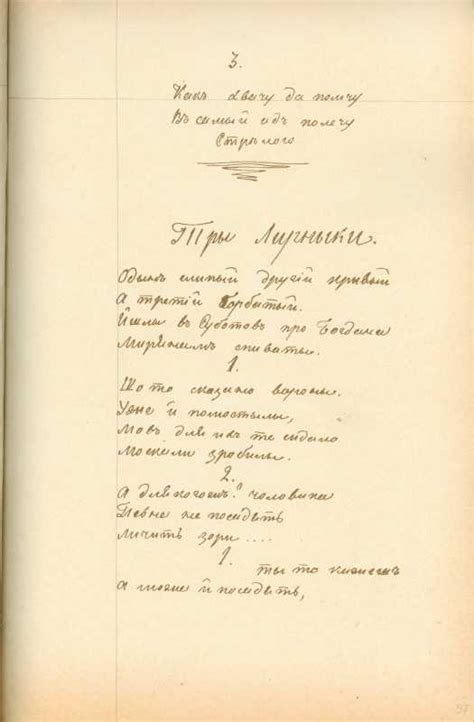 3.
Какъ свачу да полечу
Въ самый адъ полечу
Стрѣлого
Тры Лирныки.
Одынъ слипый другій крывый
А третій Горбатый.
Йшлы в Суботовъ про Богдана
Мирянамъ спиваты.
1.
Що то сказано вороны.
Уже й помостылы,
Мовъ для ихъ те сидало
Москали зробылы.
2.
А для когожъ? чоловика
Певне не посадять
Личить зори ....
1.
ты то кажешъ
А може й посадять,
37